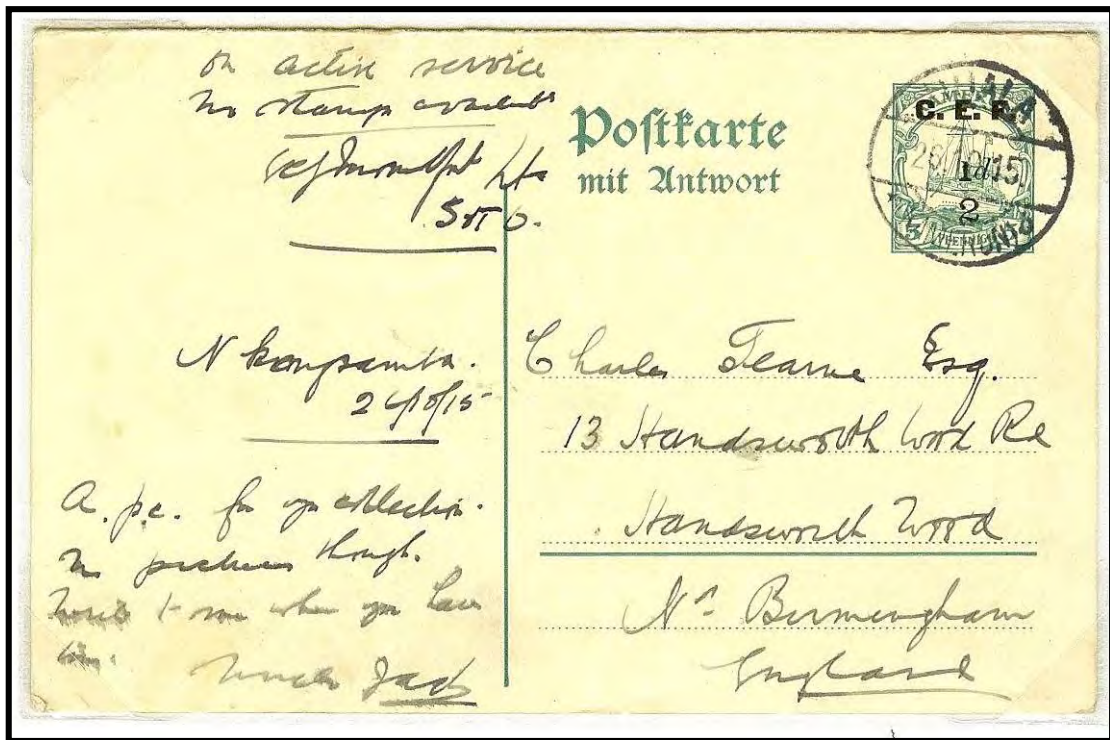 on active service
no stamps available
Lt
Postkarte
mit Antwort
C. E. F.
1d
2
15
Nkongsamba.
26/10/15
A. p.c. for yr collection.
No pictures though.
Write to me when you have
time.
Uncle Jack
Charles Fearne Esq.
13 Handsworth Wood Rd
Handsworth Wood
Nr Birmingham
England